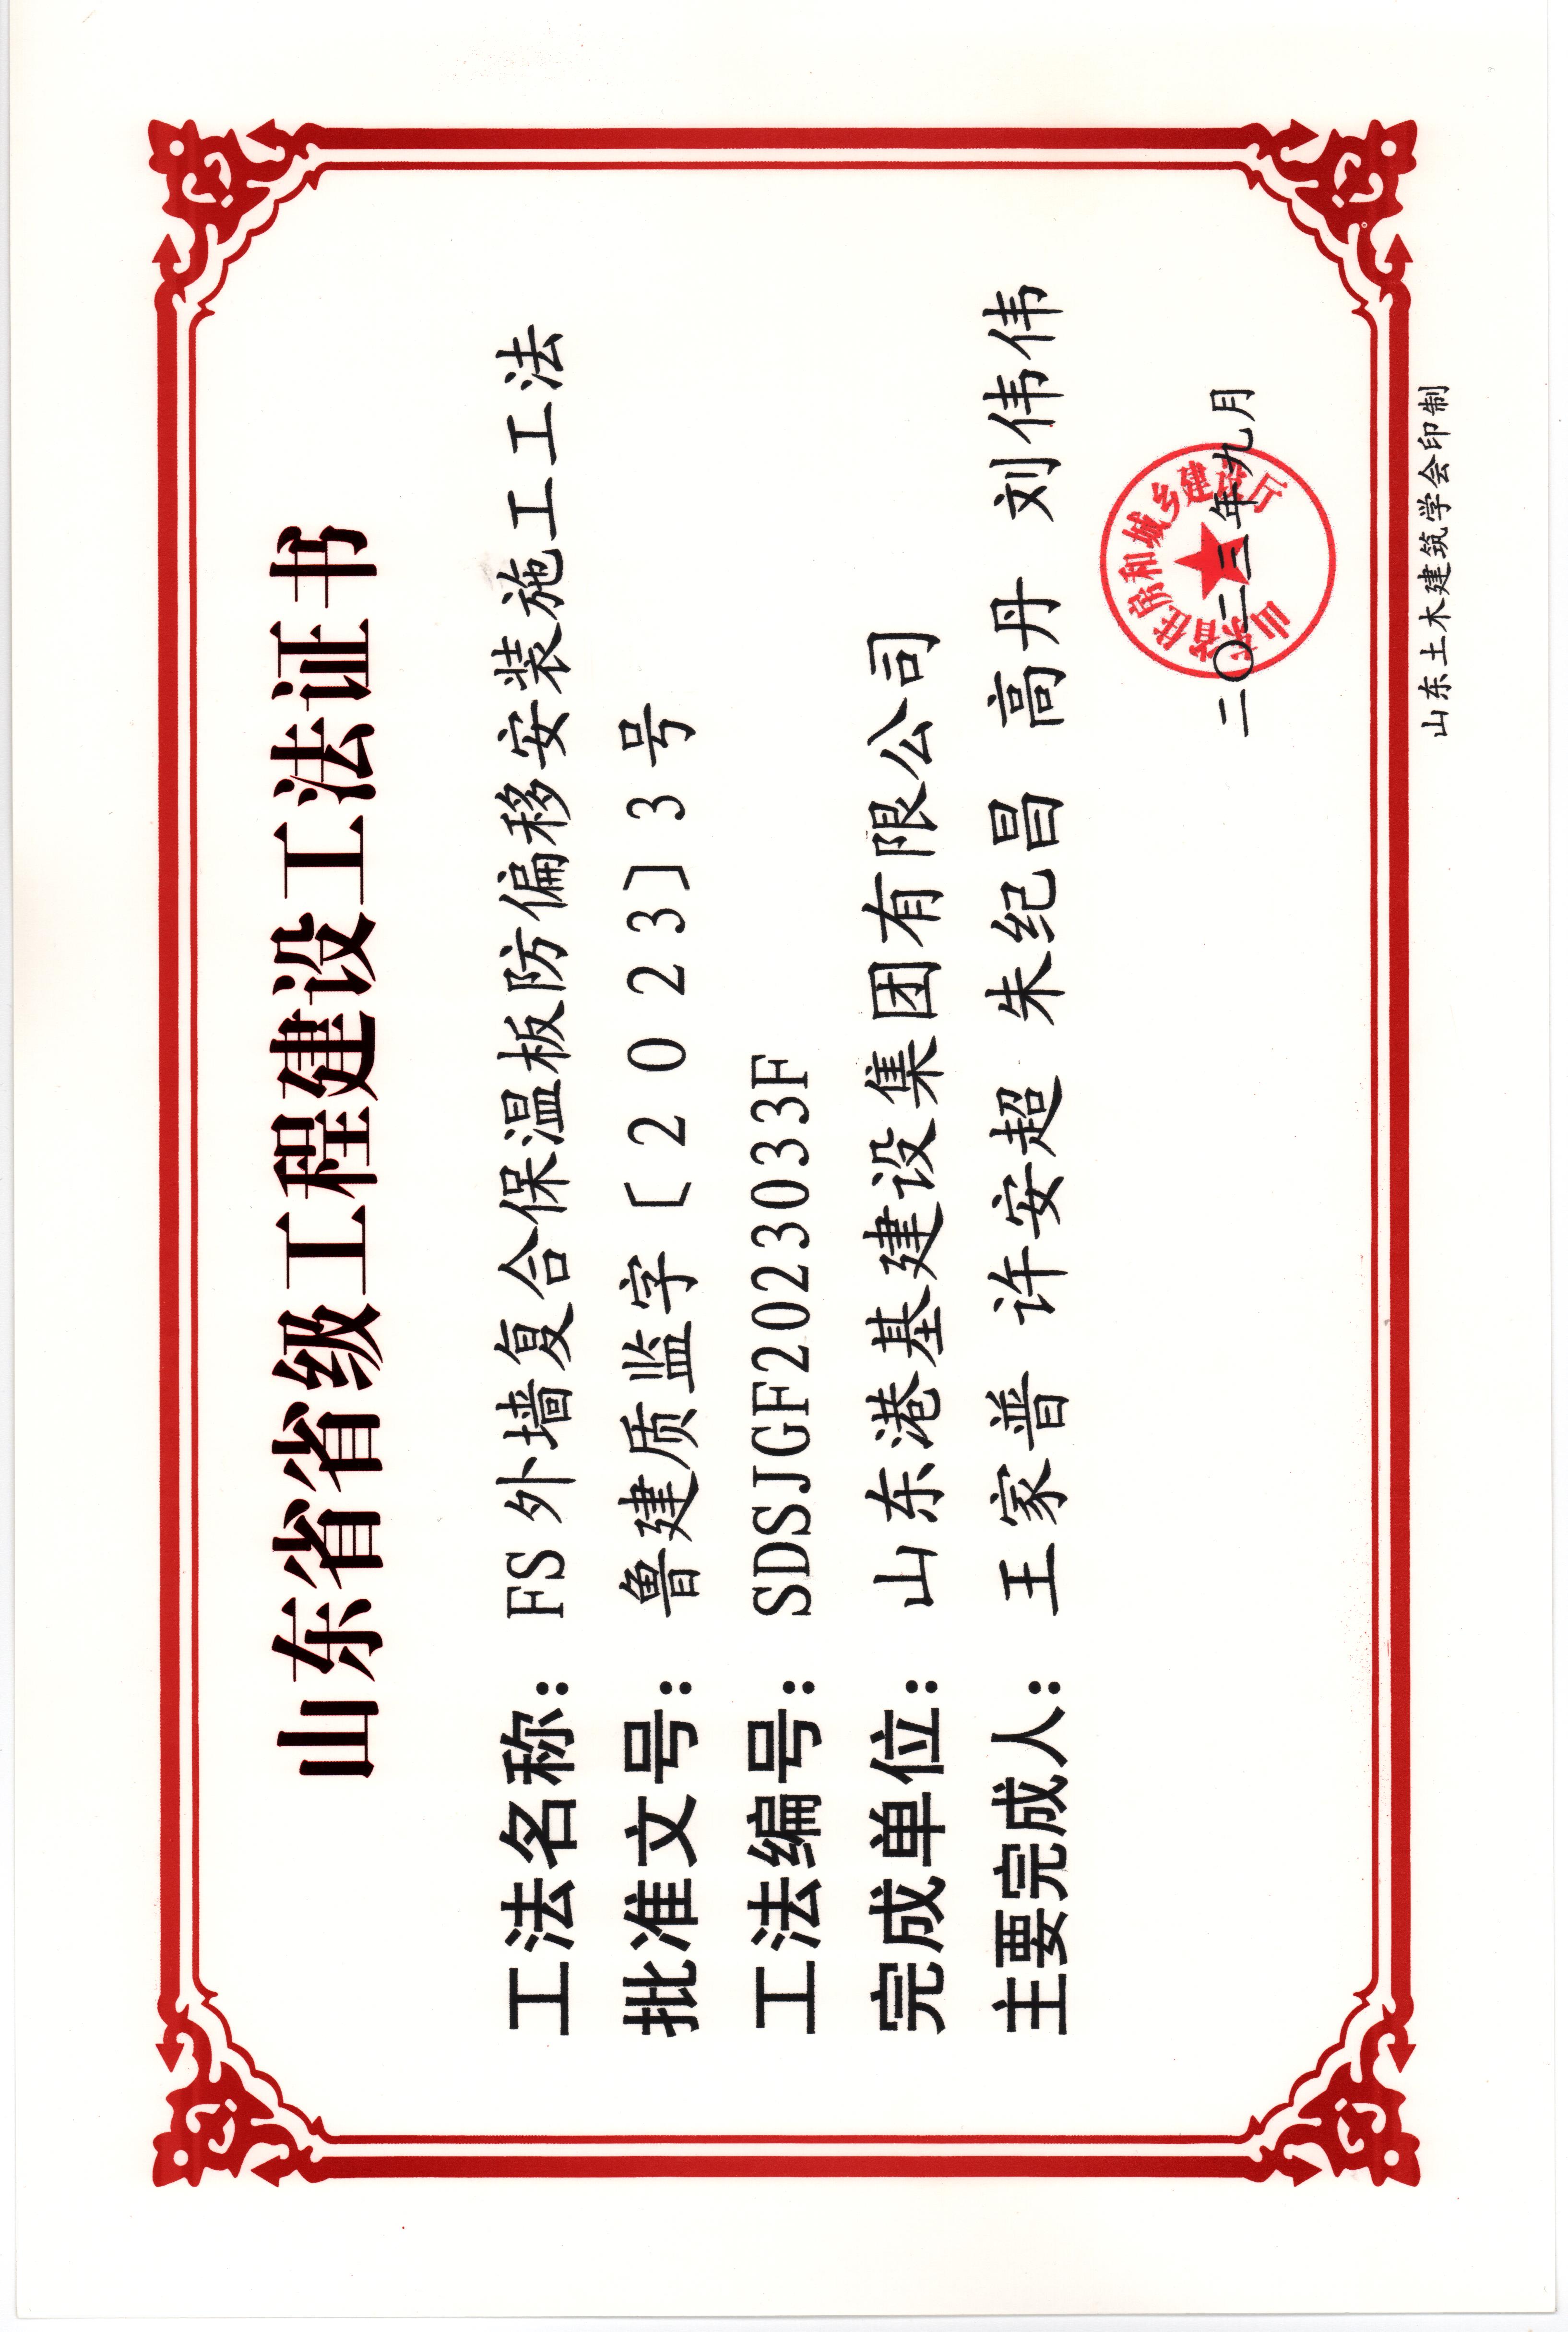 山东省省级工程建设工法证书
工法名称：FS外墙复合保温板防偏移安装施工工法
批准文号：鲁建质监字〔2023〕3号
工法编号：SDSJGF2023033F
完成单位：山东港基建设集团有限公司
主要完成人：王家普 许安超 朱纪昌 高丹 刘伟伟
山东省住房和城乡建设厅
二〇二三年九月
山东土木建筑学会印制